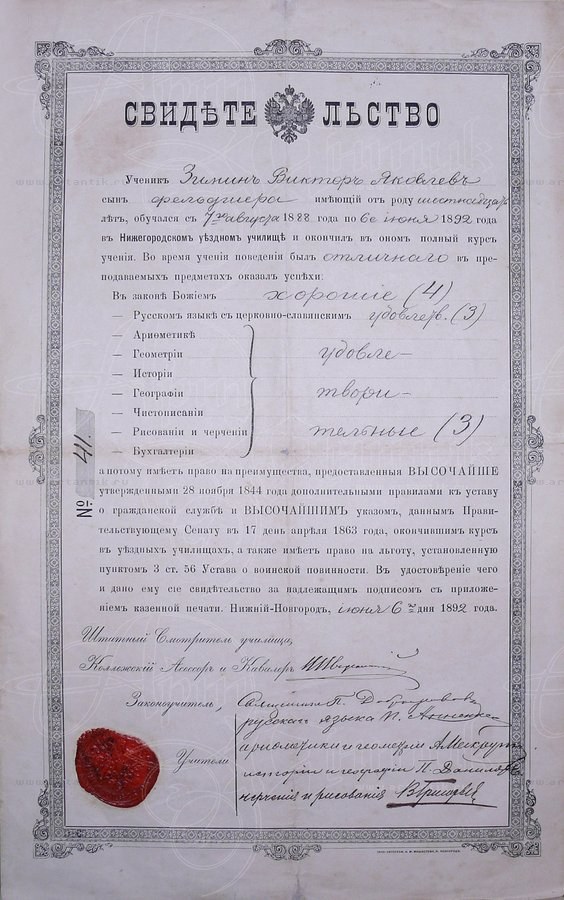 СВИДѢТЕЛЬСТВО
Ученикъ Зининъ Викторъ Яковлевъ
сынъ фельдшера имѣющій отъ роду шестнадцать
лѣтъ, обучался съ 7го августа 1888 года по 6е іюня 1892 года
въ Нижегородскомъ уѣздномъ училищѣ и окончилъ въ ономъ полный курсъ
ученія. Во время ученія поведенія былъ отличнаго въ пре-
подаваемыхъ предметахъ оказалъ успѣхи:
Въ законѣ Божіемъ хорошіе (4)
— Русскомъ языкѣ съ церковно-славянскимъ удовлетв. (3)
— Ариѳметикѣ
— Геометріи удовле-
— Исторіи
— Географіи твори-
— Чистописаніи
— Рисованіи и черченіи тельные (3)
— Бухгалтеріи
а потому имѣетъ право на преимущества, предоставленныя ВЫСОЧАЙШЕ
утвержденными 28 ноября 1844 года дополнительными правилами къ уставу
о гражданской службѣ и ВЫСОЧАЙШИМЪ указомъ, даннымъ Прави-
тельствующему Сенату въ 17 день апрѣля 1863 года, окончившимъ курсъ
въ уѣздныхъ училищахъ, а также имѣетъ право на льготу, установленную
пунктомъ 3 ст. 56 Устава о воинской повинности. Въ удостовѣреніе чего
и дано ему сіе свидѣтельство за надлежащимъ подписомъ съ приложе-
ніемъ казенной печати. Нижній-Новгородъ, іюня 6го дня 1892 года.
№ 41.
Штатный Смотритель училища,
Коллежскій Асессоръ и Кавалеръ
Законоучитель, Священникъ П.
русскаго языка
Учители ариѳметики и геометріи
исторіи и географіи П.
черченія и рисованія В Григорьевъ